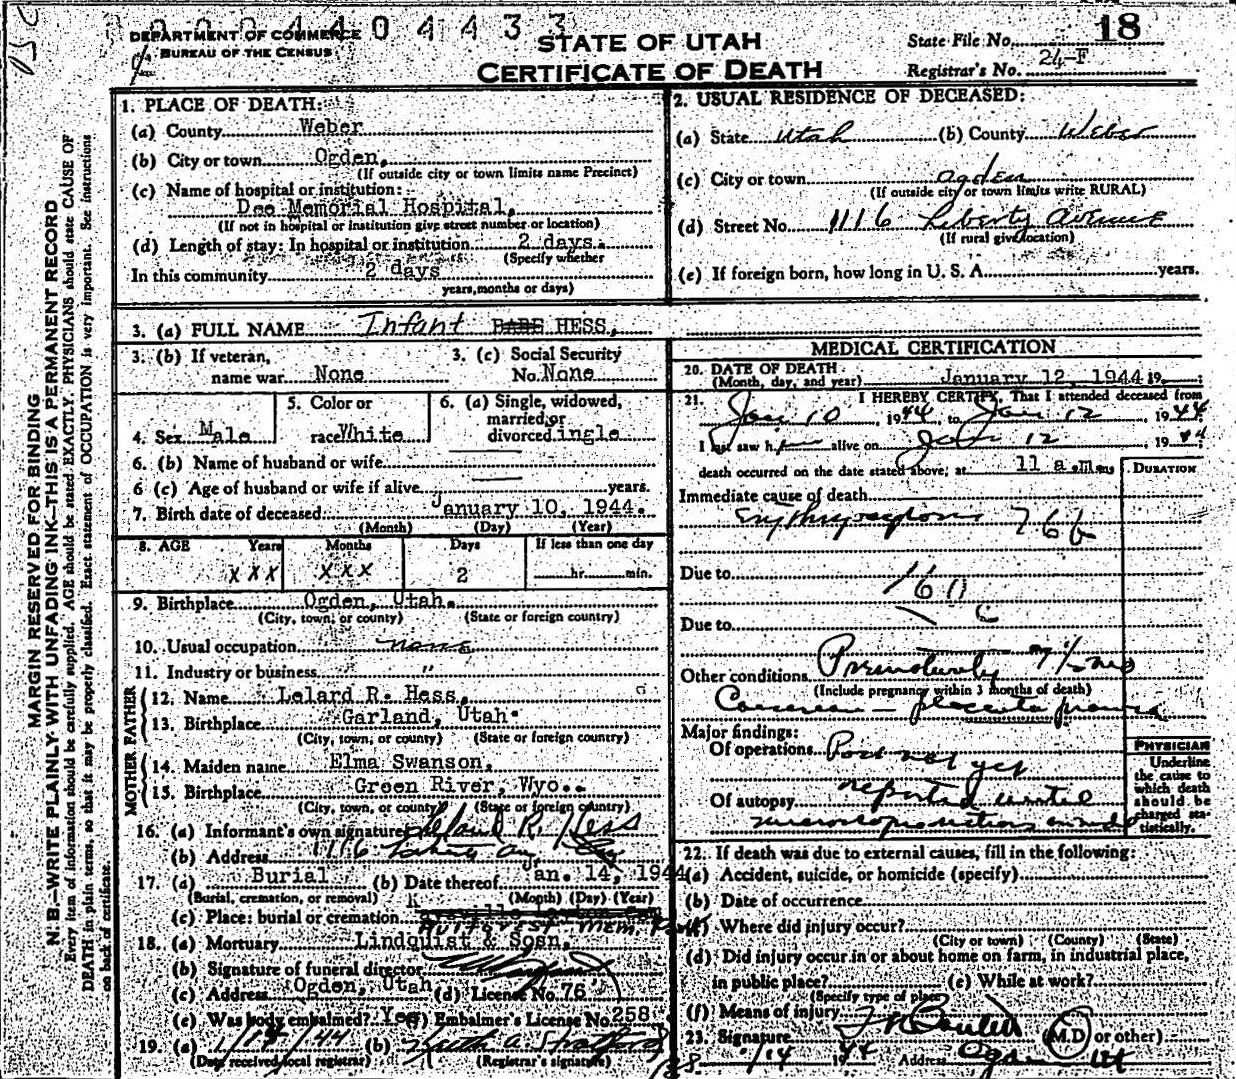 0004404433
DEPARTMENT OF COMMERCE
BUREAU OF THE CENSUS
STATE OF UTAH
CERTIFICATE OF DEATH
State File No. 18
Registrar's No. 24-F
MARGIN RESERVED FOR BINDING
N. B.—WRITE PLAINLY WITH UNFADING INK—THIS IS A PERMANENT RECORD
Every item of information should be carefully supplied. AGE should be stated EXACTLY. PHYSICIANS should state CAUSE OF
DEATH in plain terms, so that it may be properly classified. Exact statement of OCCUPATION is very important. See instructions
on back of certificate.
1. PLACE OF DEATH:
(a) County Weber
(b) City or town Ogden,
(If outside city or town limits name Precinct)
(c) Name of hospital or institution:
Dee Memorial Hospital,
(If not in hospital or institution give street number or location)
(d) Length of stay: In hospital or institution 2 days.
(Specify whether
In this community 2 days
years, months or days)
2. USUAL RESIDENCE OF DECEASED:
(a) State Utah (b) County Weber
(c) City or town Ogden
(If outside city or town limits write RURAL)
(d) Street No. 1116 Liberty Avenue
(If rural give location)
(e) If foreign born, how long in U. S. A. years.
3. (a) FULL NAME Infant BABE HESS,
3. (b) If veteran,
name war None
3. (c) Social Security
No. None
4. Sex Male
5. Color or
race White
6. (a) Single, widowed,
married, or
divorced ingle
6. (b) Name of husband or wife
6 (c) Age of husband or wife if alive years.
7. Birth date of deceased January 10, 1944.
(Month) (Day) (Year)
8. AGE Years Months Days If less than one day
XXX XXX 2 hr. min.
9. Birthplace Ogden, Utah.
(City, town, or county) (State or foreign country)
10. Usual occupation none
11. Industry or business "
FATHER
12. Name Lelard R. Hess,
13. Birthplace Garland, Utah.
(City, town, or county) (State or foreign country)
MOTHER
14. Maiden name Elma Swanson,
15. Birthplace Green River, Wyo..
(City, town, or county) (State or foreign country)
16. (a) Informant's own signature Leland R. Hess
(b) Address 1116
17. (a) Burial (b) Date thereof Jan. 14, 1944
(Burial, cremation, or removal) (Month) (Day) (Year)
(c) Place: burial or cremation Kaysville Layton Cem
Mem. Park
18. (a) Mortuary Lindquist & Sosn,
(b) Signature of funeral director
(c) Address Ogden, Utah (d) License No. 76
(e) Was body embalmed? Yes (f) Embalmer's License No. 258
19. (a) 1/14/44 (b) Ruth A. Stratford
(Date received local registrar) (Registrar's signature)
MEDICAL CERTIFICATION
20. DATE OF DEATH
(Month, day, and year) January 12, 1944 19
21. I HEREBY CERTIFY, That I attended deceased from
Jan 10, 1944 to Jan 12, 1944
I last saw h alive on Jan 12 1944
death occurred on the date stated above, at 11 a.m.
DURATION
Immediate cause of death
766
Due to 160
c
Due to
Other conditions Prematurity 7 1/2 mo
(Include pregnancy within 3 months of death)
Caesarean - placenta previa
Major findings:
Of operations Post not yet
Of autopsy reported until
microscopic sections made
PHYSICIAN
Underline
the cause to
which death
should be
charged sta-
tistically.
22. If death was due to external causes, fill in the following:
(a) Accident, suicide, or homicide (specify)
(b) Date of occurrence
(c) Where did injury occur?
(City or town) (County) (State)
(d) Did injury occur in or about home on farm, in industrial place,
in public place? (e) While at work?
(Specify type of place
(f) Means of injury
23. Signature (M.D. or other)
1/14 1944 Address Ogden Ut